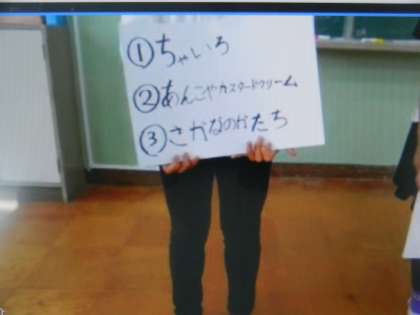 ①ちゃいろ
②あんこやカスタードクリーム
③さかなのかたち